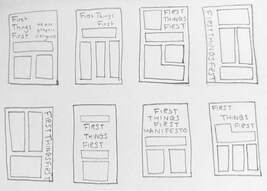 First
Things
First
First Things
First
FIRST
THINGS
FIRST
FIRST THINGS FIRST
FIRST THINGS FIRST
FIRST
THINGS
FIRST
FIRST
THINGS
FIRST
MANIFESTO
FIRST
THINGS
FIRST